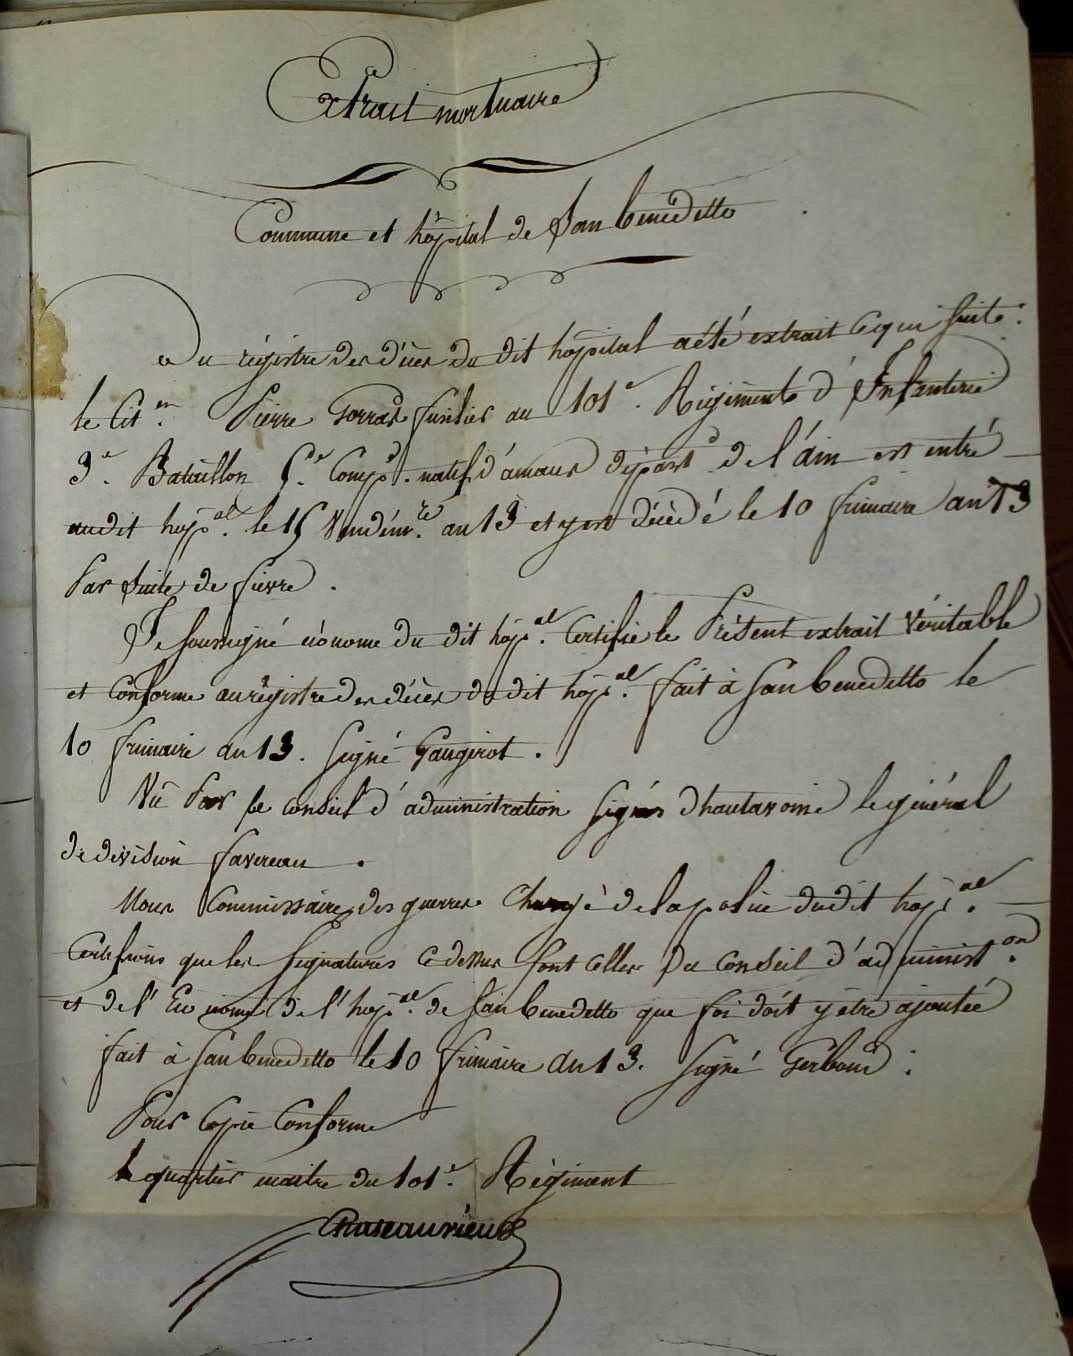 Extrait mortuaire
Commune et hôpital de San benedetto
Du régistre des décès du dit hopital a été extrait ce qui suit :
le Cit.en Pierre Gorrat fusilier au 101e. Régiment d'Infanterie
3e. Bataillon 5e. Comp. natif d'amaur départ de l'ain est entré
audit hop.al le 15 Vendém.re an 13 et y est décédé le 10 frimaire an 13
Par suite de fievre.
Je soussigné économe du dit hop.al Certifie le Présent extrait véritable
et Conforme au régistre des décès du dit hop.al fait à San benedetto le
10 frimaire an 13. signé Gaugirot.
Vû Par le conseil d'administration signés dhautanome le général
de division favereau.
Nous Commissaire des guerres Chargé de la police dudit hop.al
Certifions que les signatures ci dessus sont celles du Conseil d'administ.on
et de l'Econome de l'hop.al de San benedetto que foi doit y être ajoutée
fait à San benedetto le 10 frimaire an 13. signé Gerboud :
Pour Copie Conforme
le quartier maitre du 101e. Régiment
Chateauvieux